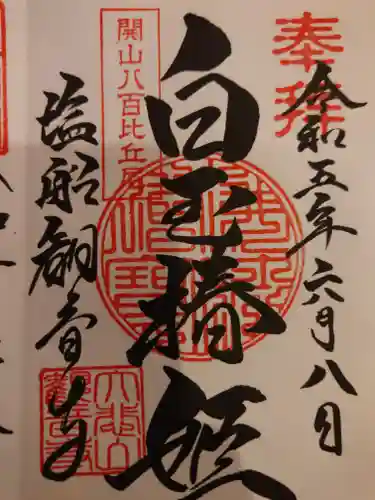 奉拝
令和五年六月八日
白玉椿姫
開山八百比丘尼
塩船観音寺